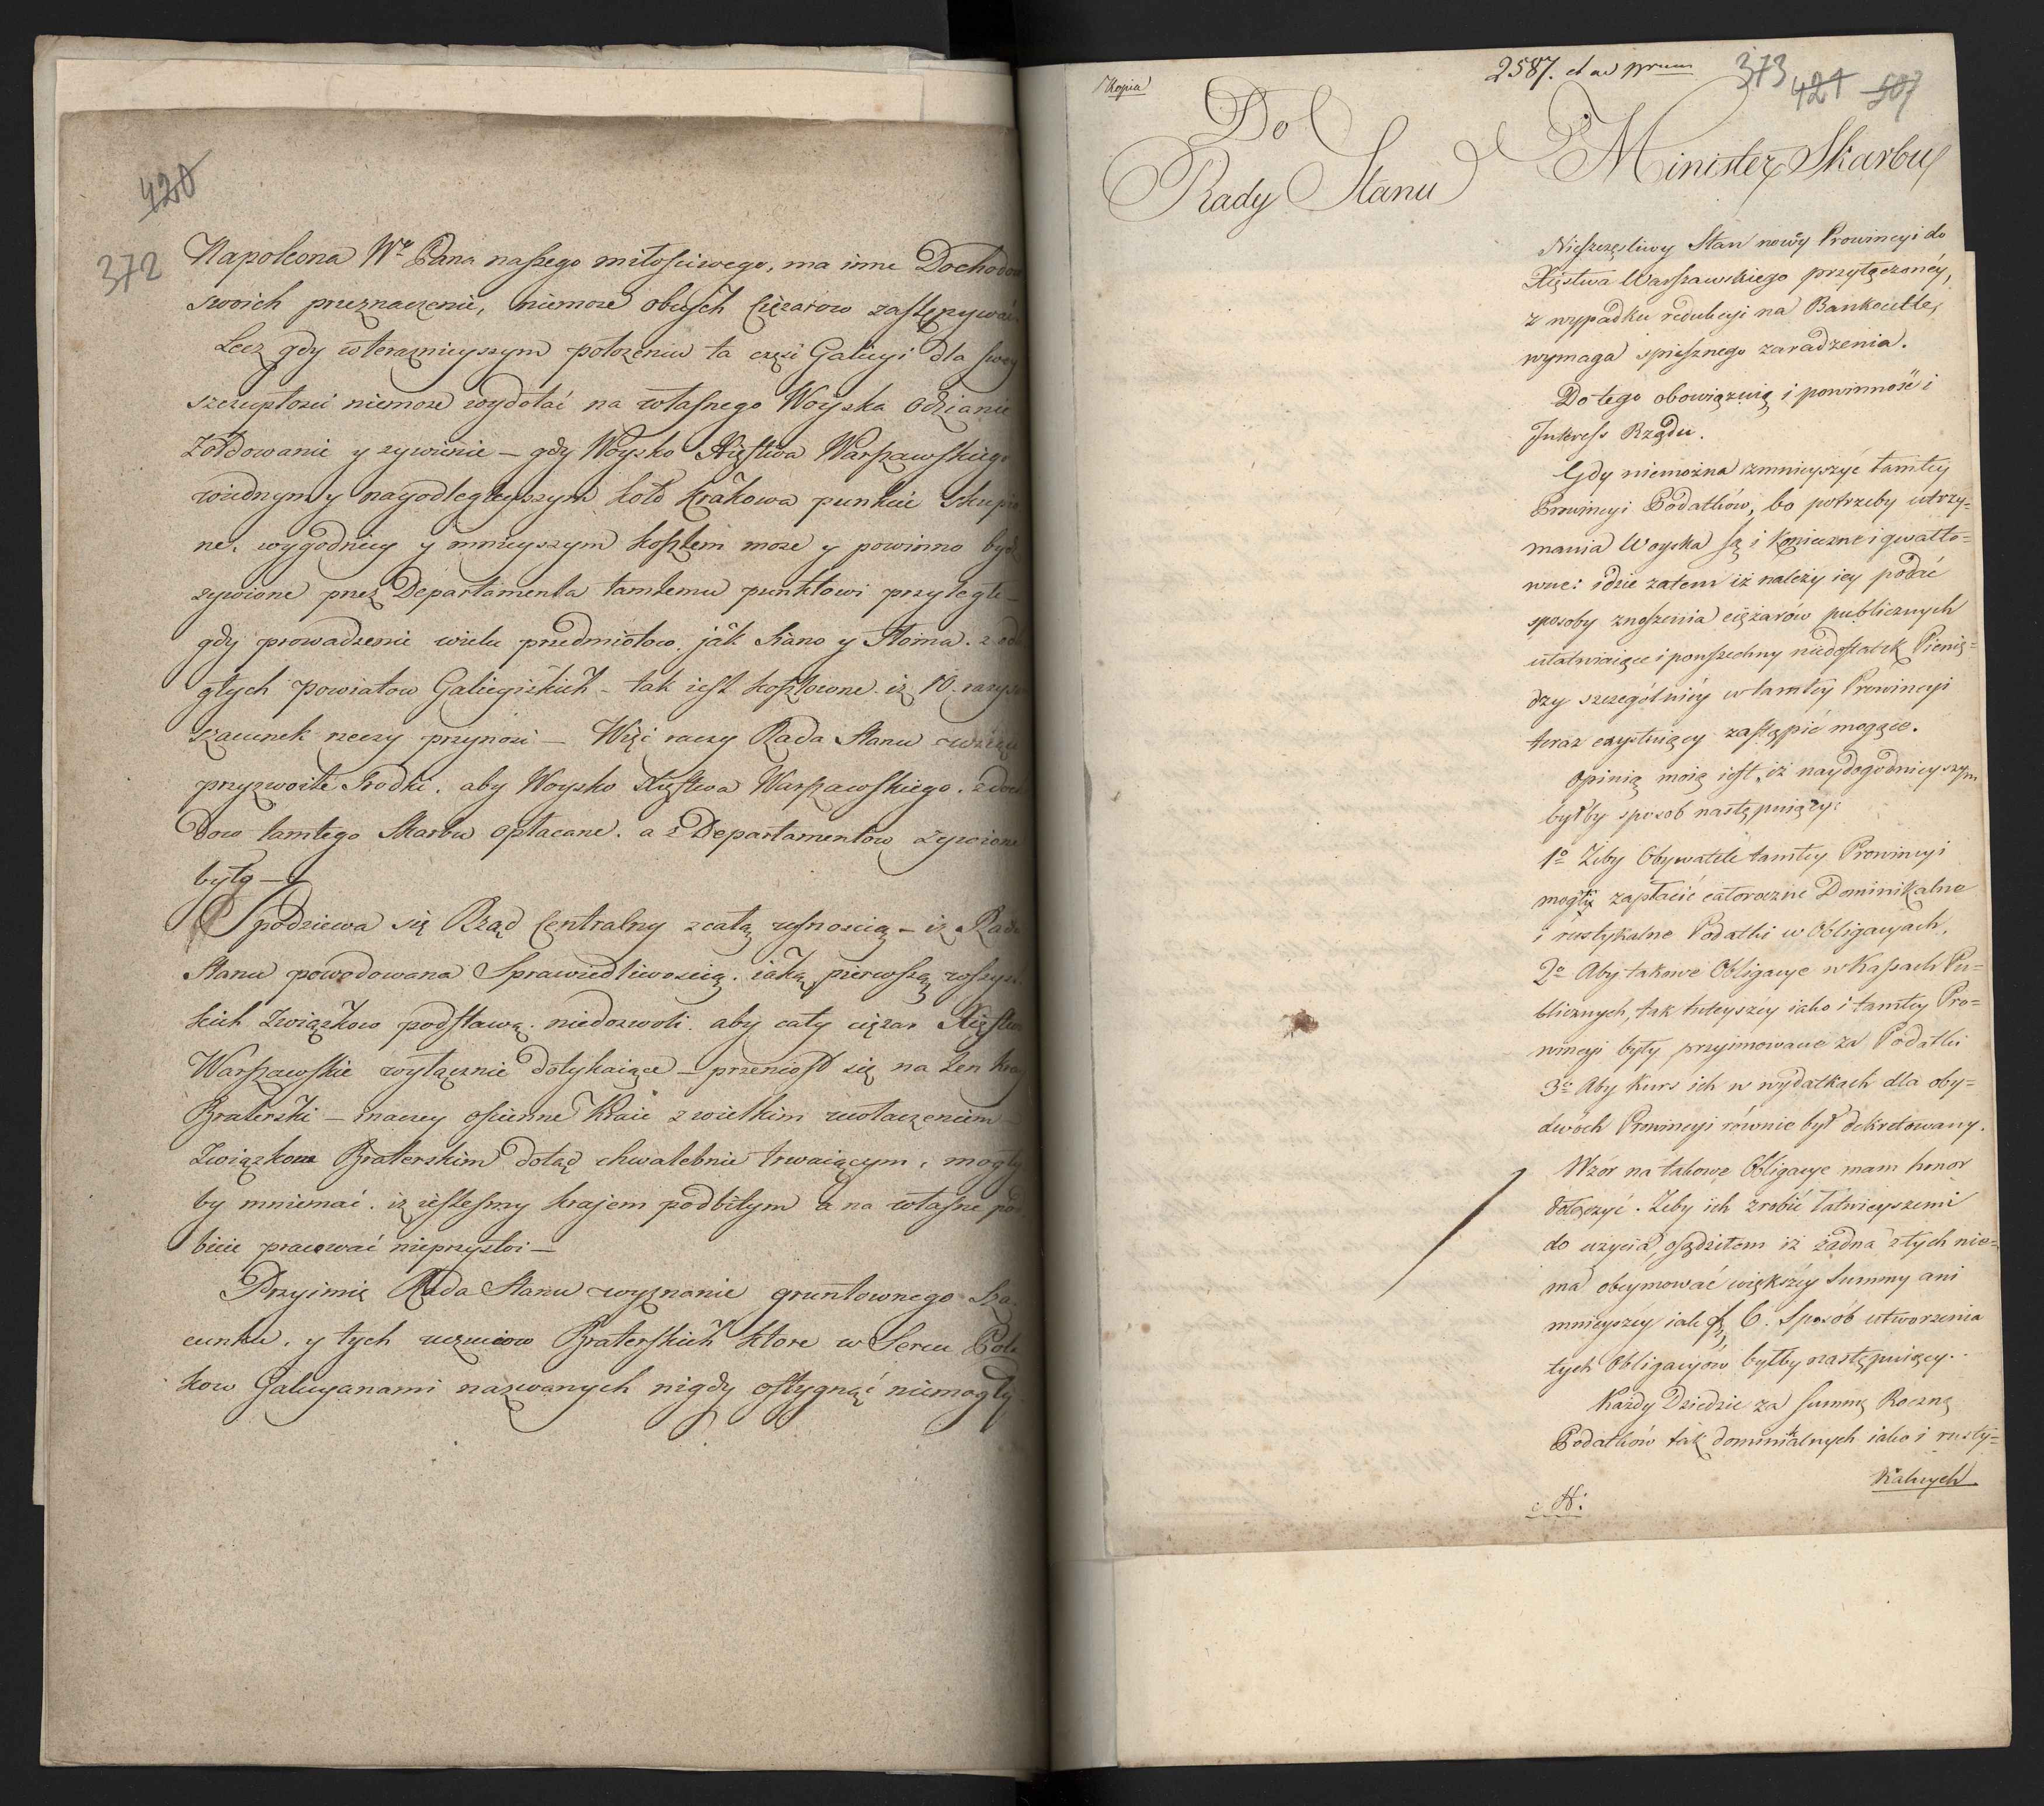 420
372
Napoleona Wo Pana naszego miłościwego, ma inne Dochodow
swoich przeznaczenie, niemoże obuych Ciężarow zastępywać.
Lecz gdy w teraznieyszym położeniu ta część Galicyi dla swey
szczupłości niemoże wydołać na własnego Woyska Odzianie
Żołdowanie y żywienie – gdy Woysko Xięstwa Warszawskiego
w iednym y nayodlegleyszym koło Krakowa punkcie skupio
ne, wygodniey y mnieyszym kosztem może y powinno bydź
żywione przez Departamenta tamtemu punktowi przyległe –
gdy prowadzenie wielu przedmiotow, jak Siano y Słoma, z odle
głych powiatow Galicyiskich – tak iest kosztowne, iż 10. razy
szacunek rzeczy przynosi – Więc raczy Rada Stanu
przyzwoite Srodki, aby Woysko Xięstwa Warszawskiego, z docho
dow tamtego Skarbu opłacane, a z Departamentow żywione
było –
Spodziewa się Rząd Centralny z całą ufnością – iż Rada
Stanu powodowana Sprawiedliwością, iaką pierwszą wszyst
kich Związkow podstawą, niedozwoli, aby cały ciężar Xięstwo
Warszawskie wyłącznie dotykaiące – przeniosł się na ten Kray
Braterski – inaczey oscienne Kraie z wielkim uwłaczeniem –
Związkom Braterskim dotąd chwalebnie trwaiącym, mogły
by mniemać, iż iesteśmy krajem podbitym a na własne pod
bicie pracować nieprzystoi –
Przyimie Rada Stanu wyznanie gruntownego Sza
cunku, y tych uczuciow Braterskich ktore w Sercu Pola
kow Galicyanami nazwanych nigdy ostygnąć niemogły
Kopia
2587. et ad
373 421 507
Do
Rady Stanu
Minister Skarbu
Nieszczęśliwy Stan nowéy Prowincyi do
Xięstwa Warszawskiego przyłączonéy,
z wypadku redukcyi na Bankocetle,
wymaga spiesznego zaradzenia.
Do tego obowiązuią i powinność i
Interess Rządu.
Gdy niemożna zmnieyszyć tamtey
Prowincyi Podatków, bo potrzeby utrzy=
mania Woyska są i konieczne i gwałto=
wne: idzie zatem iż należy iey podać
sposoby znoszenia ciężarów publicznych
ułatwiaiące i powszechny niedostatek Pienię=
dzy szczególniey w tamtéy Prowincyi
teraz exystuiący zastąpić mogące.
Opinią moią iest, iż naydogodnieyszym
byłby sposob następuiący:
1o Żeby Obywatele tamtey Prowincyi
mogli zapłacić całoroczne Dominikalne
i rustykalne Podatki w Obligacyach.
2o Aby takowe Obligacye w Kassach Pu=
blicznych, tak tuteyszéy iako i tamtey Pro=
wincyi były przyimowane za Podatki
3o Aby kurs ich w wydatkach dla oby=
dwóch Prowincyi równie był dekretowany.
Wzór na takowe Obligacye mam honor
dołączyć. Żeby ich zrobić łatwieyszemi
do użycia, osądziłem iż żadna z tych nie=
ma obeymować większéy Summy ani
mnieyszéy iak 6. Sposób utworzenia
tych Obligacyów byłby następuiący.
Każdy Dziedzic za summę Roczną
Podatków tak dominikalnych iako i rusty=
kalnych